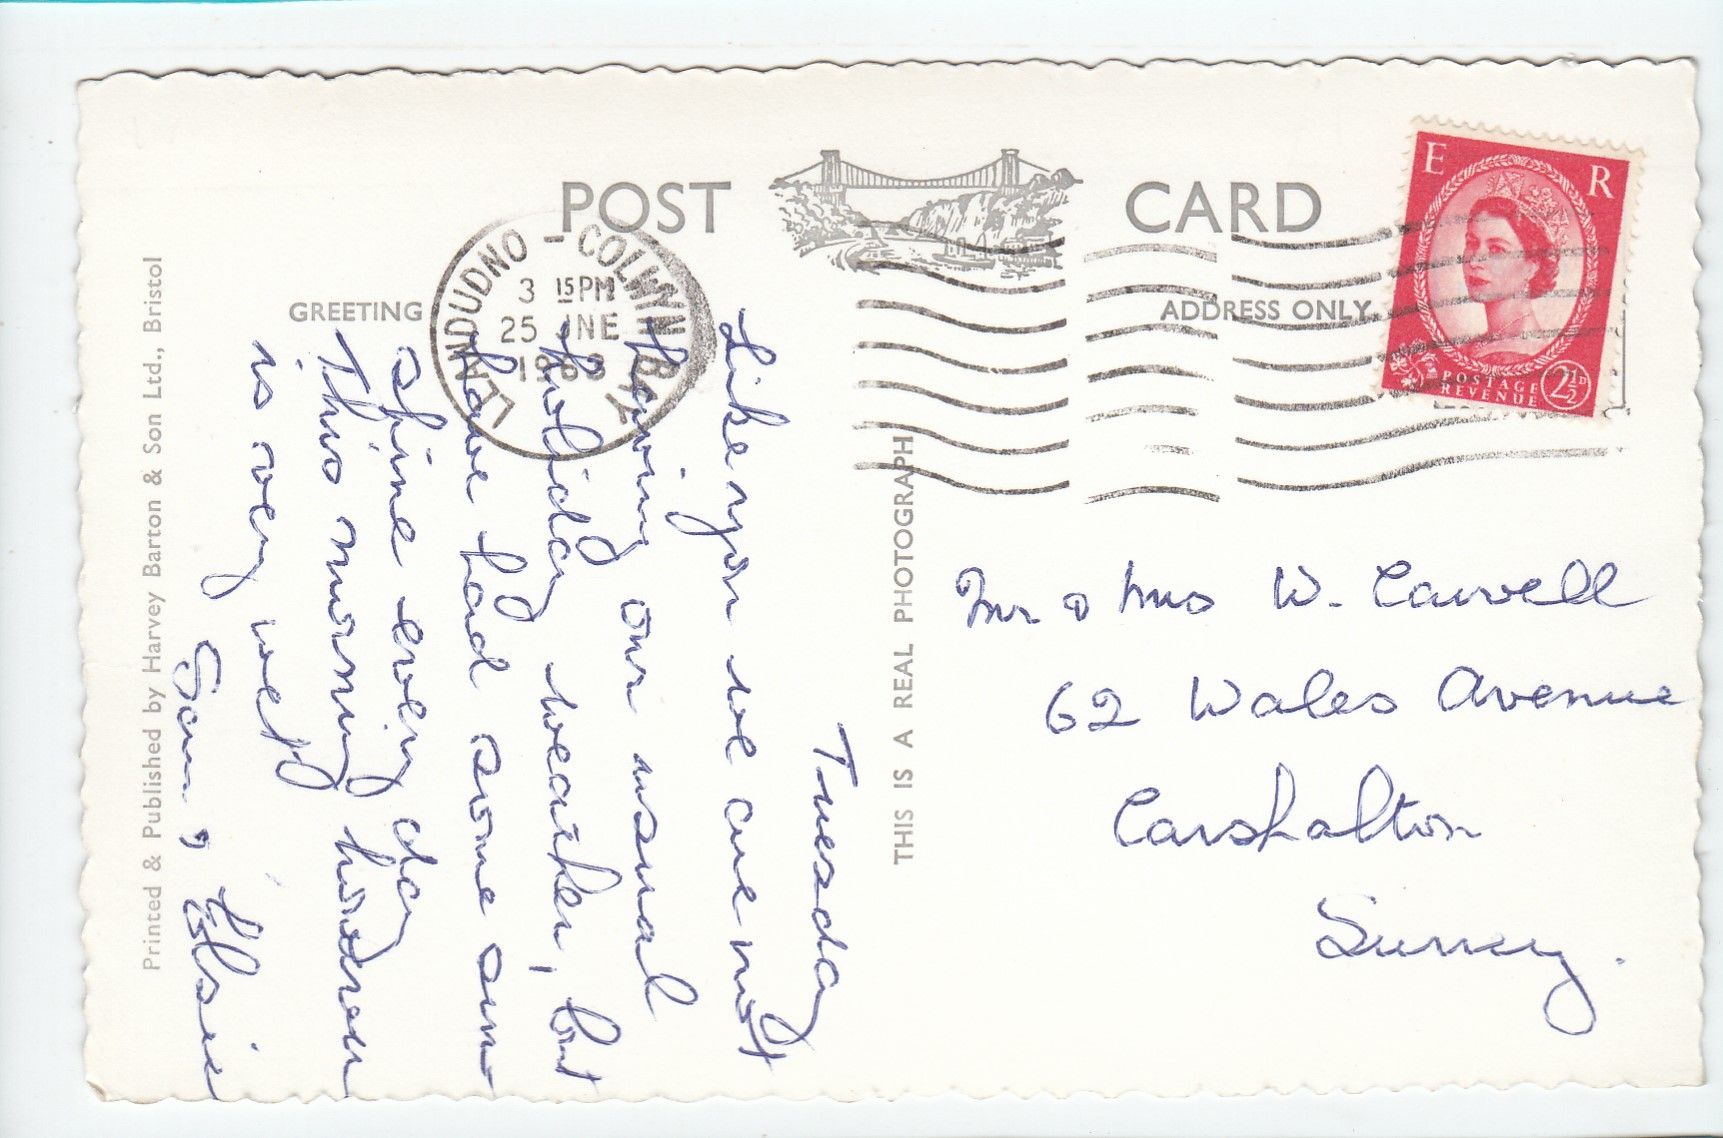 POST CARD
GREETING
ADDRESS ONLY
LLANDUDNO - COLWYN BAY
3 15PM
25 JNE
1963
E R
POSTAGE
REVENUE
2½D
Tuesday
Like you we are not
having our usual
holiday weather, but
have had some sun
shine every day
This morning however
is very wet
Sam & Elsie
THIS IS A REAL PHOTOGRAPH
Printed & Published by Harvey Barton & Son Ltd., Bristol
Mr & Mrs W.
62 Wales Avenue
Carshalton
Surrey.